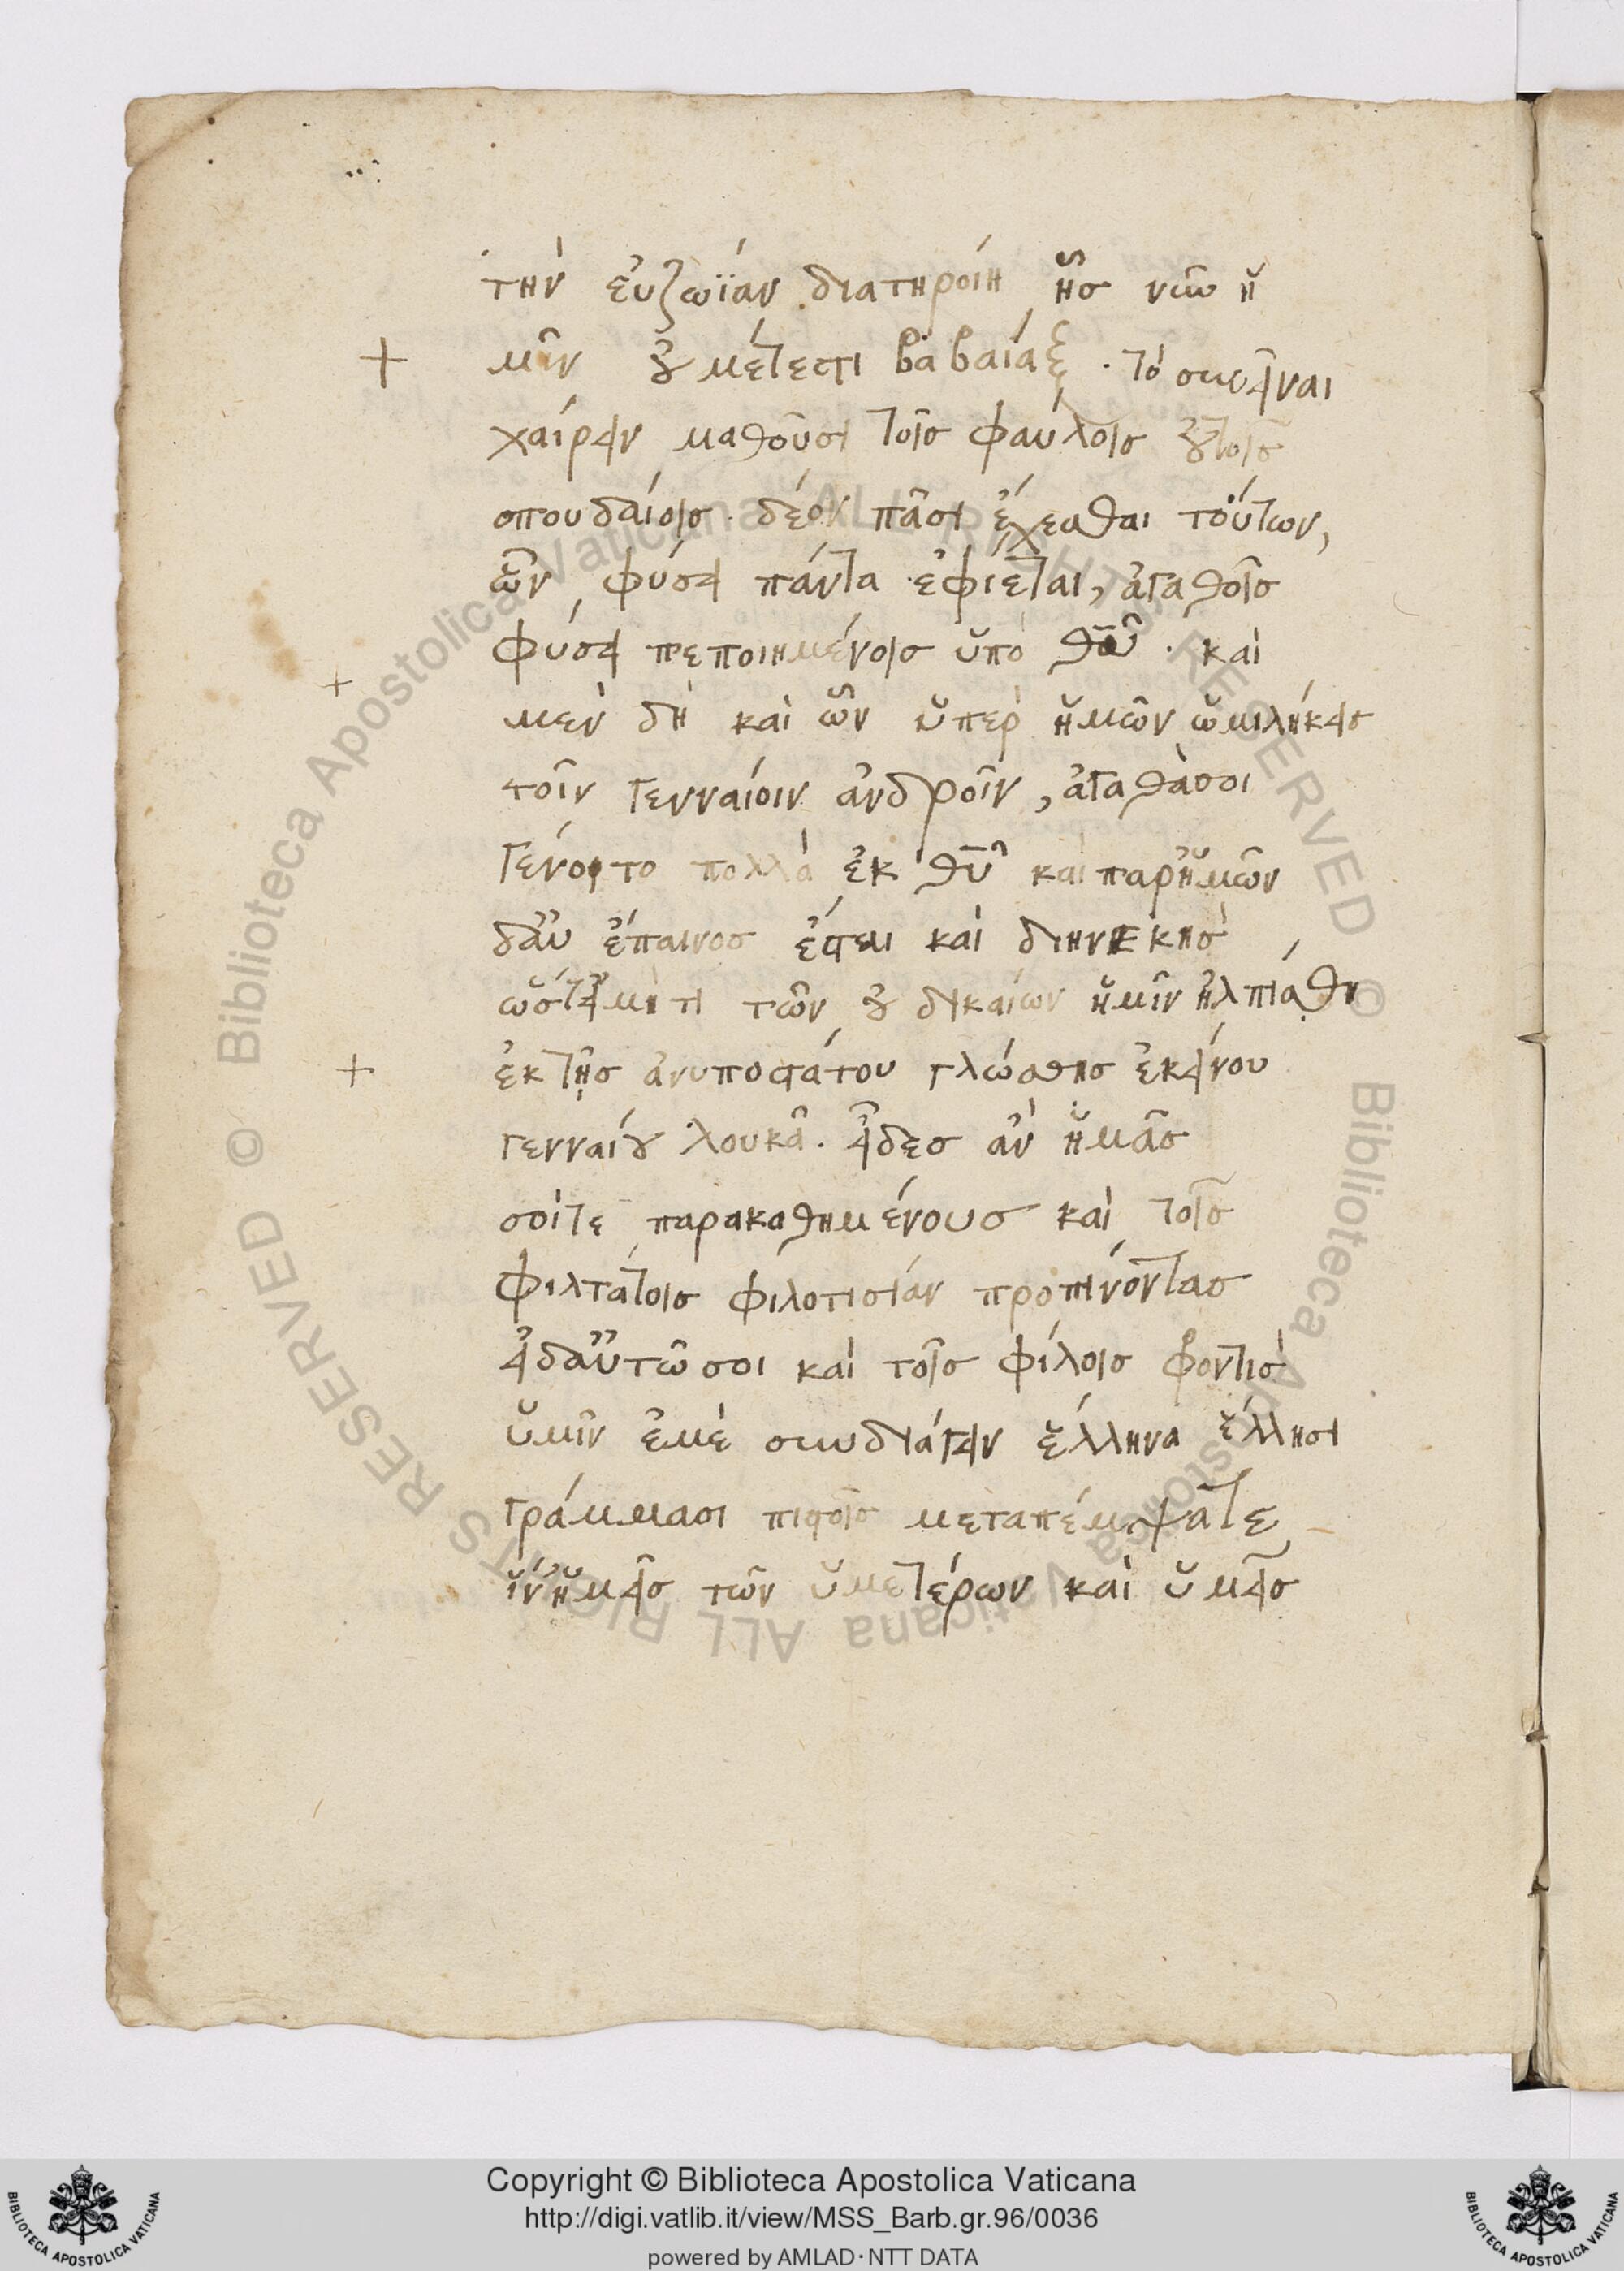 τὴν εὐζωΐαν διατηροίη ἧσ νῦν ἡ
μῖν οὐ μέτεστι βαβαιάξ. τὸ συνεῖναι
χαίρειν μαθοῦσι τοῖσ φαύλοισ οὐ τοῖσ
σπουδαίοισ. δέον πᾶσι ἔχεσθαι τούτων,
ὧν φύσει πάντα ἐφίεται, ἀγαθοῖσ
φύσει πεποιημένοισ ὑπὸ θ̅υ̅. καὶ
μὲν δὴ καὶ ὧν ὑπὲρ ἡμῶν ὡμιλήκεισ
τοῖν γενναίοιν ἀνδροῖν, ἀγαθά σοι
γένοιτο πολλὰ ἐκ θ̅υ̅ καὶ παρ' ἡμῶν
δ' αὖ ἔπαινοσ ἔσται καὶ διηνεκὴσ
ὥστ' εἴ μή τι τῶν οὐ δικαίων ἡμῖν ἠλπίσθη
ἐκ τῆσ ἀνυποστάτου γλώσσησ ἐκείνου
γενναίου λουκᾶ. εἶδεσ ἂν ἡμᾶσ
σοί τε παρακαθημένουσ καὶ τοῖσ
φιλτάτοισ φιλοτισίαν προπίνοντασ
εἰ δ' αὖ τῶ σοι καὶ τοῖσ φίλοισ φροντὶσ
ὑμῖν ἐμὲ συνδιάγειν ἕλληνα ἕλλησι
γράμμασι πιστοῖσ μεταπέμψατε
ἵν' ἡμεῖσ τῶν ὑμετέρων καὶ ὑμεῖσ
Copyright © Biblioteca Apostolica Vaticana
http://digi.vatlib.it/view/MSS_Barb.gr.96/0036
powered by AMLAD·NTT DATA
BIBLIOTECA APOSTOLICA VATICANA
BIBLIOTECA APOSTOLICA VATICANA
© Biblioteca Apostolica Vaticana ALL RIGHTS RESERVED
© Biblioteca Apostolica Vaticana ALL RIGHTS RESERVED